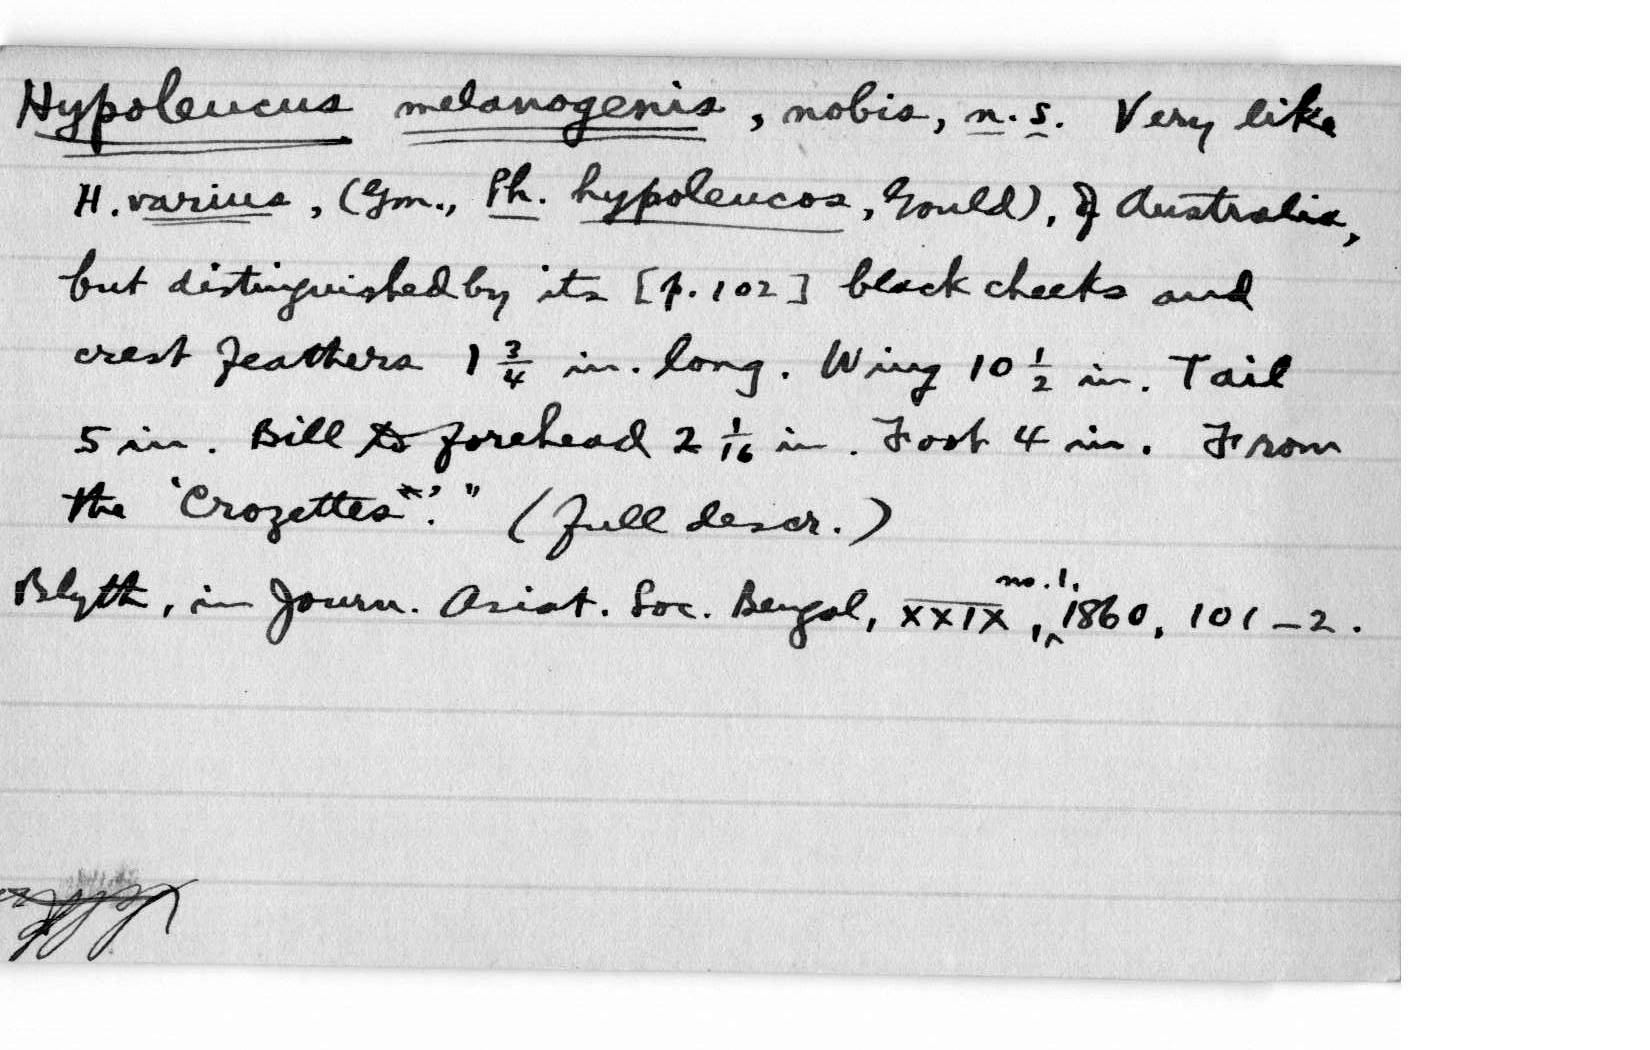 Hypoleucus melanogenis, nobis, n.s. Very like
H. varius, (Gm., Ph. hypoleucos, Gould), of Australia,
but distinguished by its [p. 102] black cheeks and
crest feathers 1 3/4 in. long. Wing 10 1/2 in. Tail
5 in. Bill to forehead 2 1/16 in. Foot 4 in. From
the 'Crozettes*'." (full descr.)
Blyth, in Journ. Asiat. Soc. Bengal, XXIX, no. 1, 1860, 101-2.